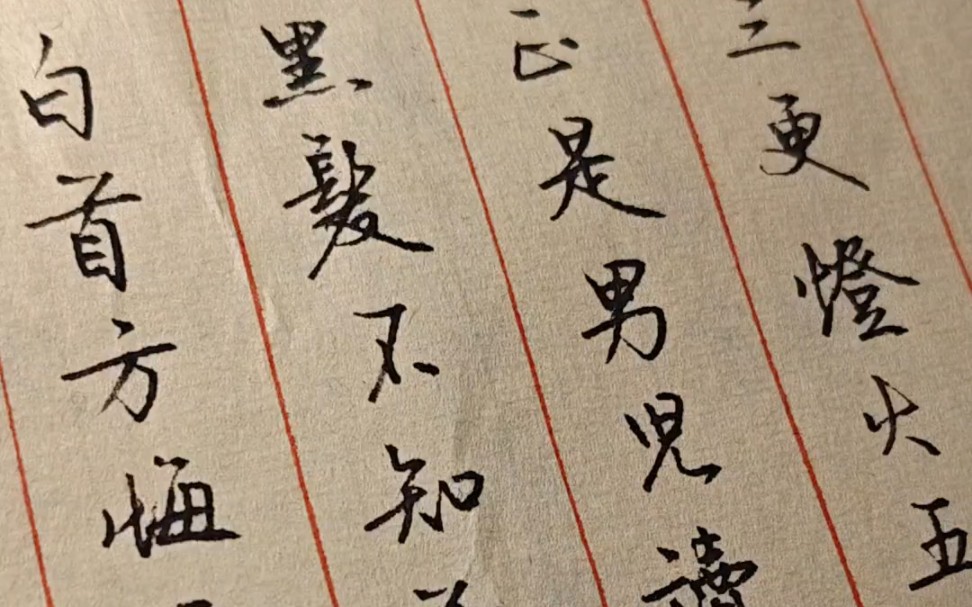 三更燈火五
正是男兒讀
黑髮不知
白首方悔